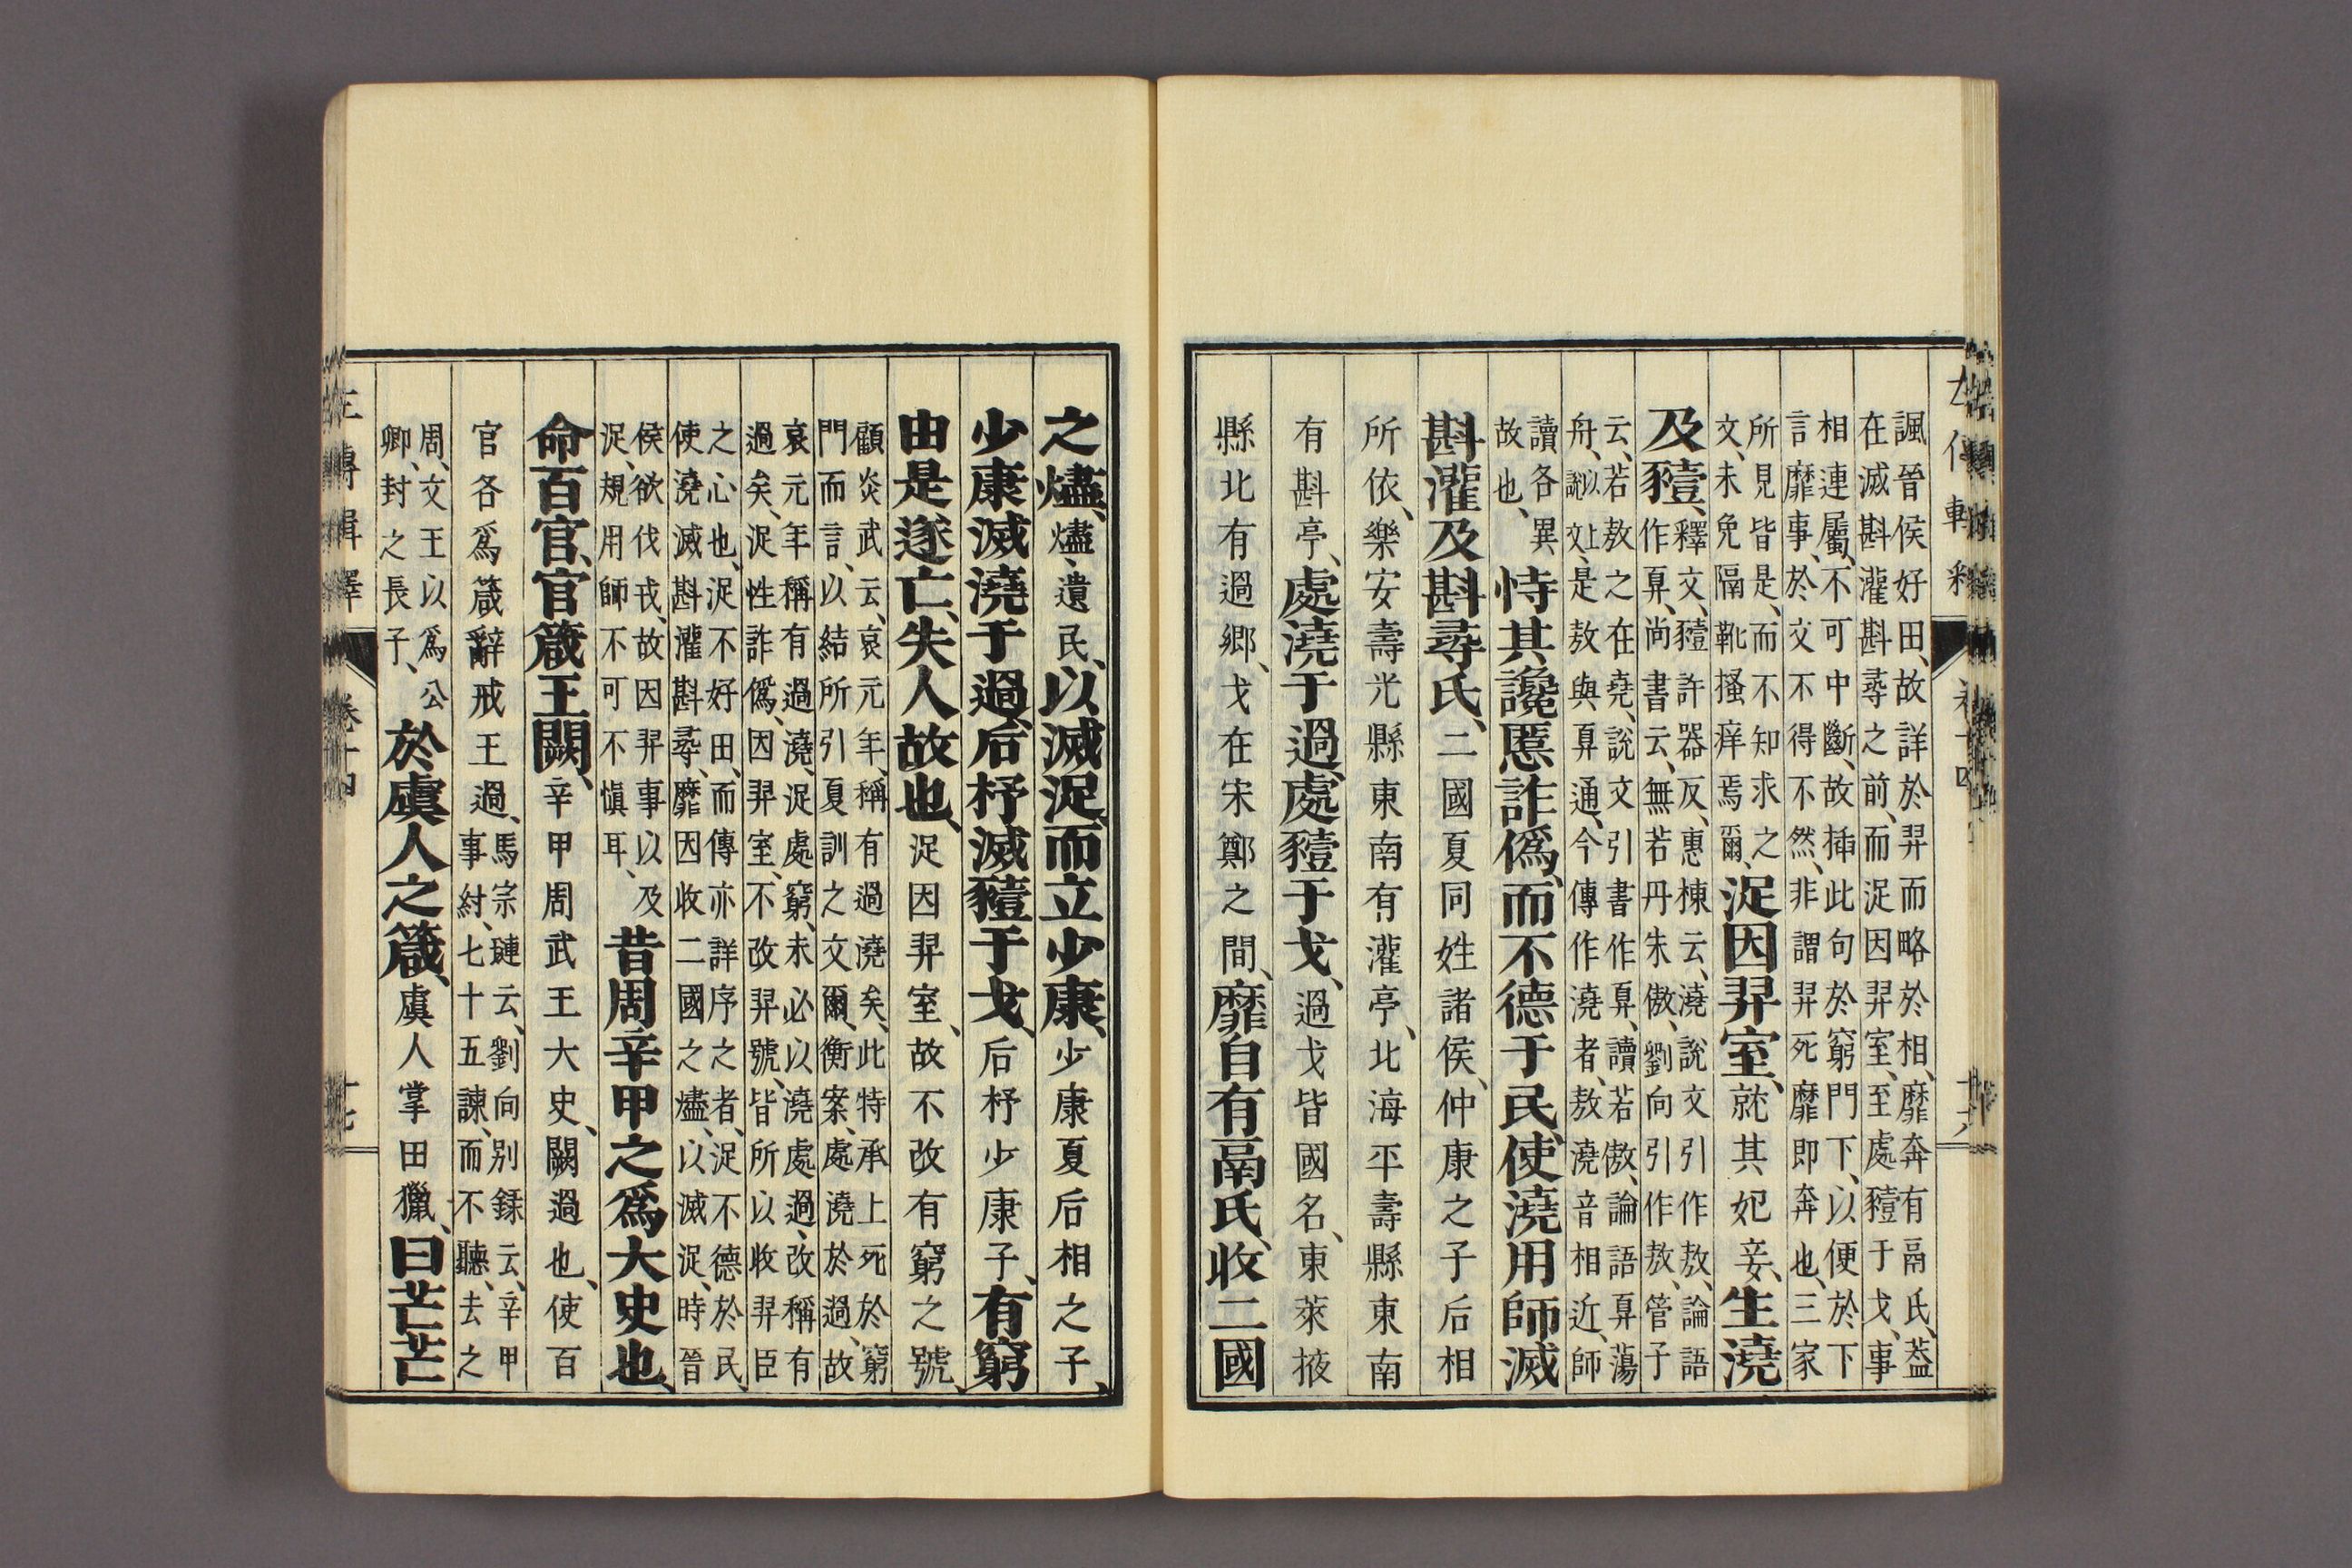 諷晉侯好田、故詳於羿而略於相、靡奔有鬲氏、蓋
在滅斟灌斟尋之前、而浞因羿室、至處豷于戈、事
相連屬、不可中斷、故揷此句於窮門下、以便於下
言靡事、於文不得不然、非謂羿死靡即奔也、三家
所見皆是、而不知求之
文、未免隔靴搔痒焉爾、浞因羿室、就其妃妾、生澆
及豷、釋文、豷許器反、惠棟云、澆說文引作敖、論語
作奡、尚書云、無若丹朱傲、劉向引作敖、管子
云、若敖之在堯、說文引書作奡、讀若傲、論語奡蕩
舟、以說上文、是敖與奡通、今傳作澆者、敖澆音相近、師
讀各異
故也、恃其讒慝詐僞、而不德于民、使澆用師滅
斟灌及斟尋氏、二國夏同姓諸侯、仲康之子后相
所依、樂安壽光縣東南有灌亭、北海平壽縣東南
有斟亭、處澆于過、處豷于戈、過戈皆國名、東萊掖
縣北有過鄉、戈在宋鄭之間、靡自有鬲氏、收二國
之燼、燼遺民、以滅浞、而立少康、少康夏后相之子、
少康滅澆于過、后杼滅豷于戈、后杼少康子、有窮
由是遂亡、失人故也、浞因羿室、故不改有窮之號、
顧炎武云、哀元年、稱有過澆矣、此特承上死於窮
門而言、以結所引夏訓之文爾、衡案、處澆於過、故
哀元年稱有過澆、浞處窮、未必以澆處過、改稱有
過矣、浞性詐僞、因羿室、不改羿號、皆所以收羿臣
之心也、浞不好田、而傳亦詳序之者、浞不德於民、
使澆滅斟灌斟尋、靡因收二國之燼、以滅浞、時晉
侯欲伐戎、故因羿事以及
浞、規用師不可不愼耳、昔周辛甲之爲大史也、
命百官、官箴王闕、辛甲周武王大史、闕過也、使百
官各爲箴辭戒王過、馬宗璉云、劉向別錄云、辛甲
事紂、七十五諫、而不聽、去之
周、文王以爲公
卿、封之長子、於虞人之箴、虞人掌田獵、曰芒芒
左傳輯釋 卷十四 十七